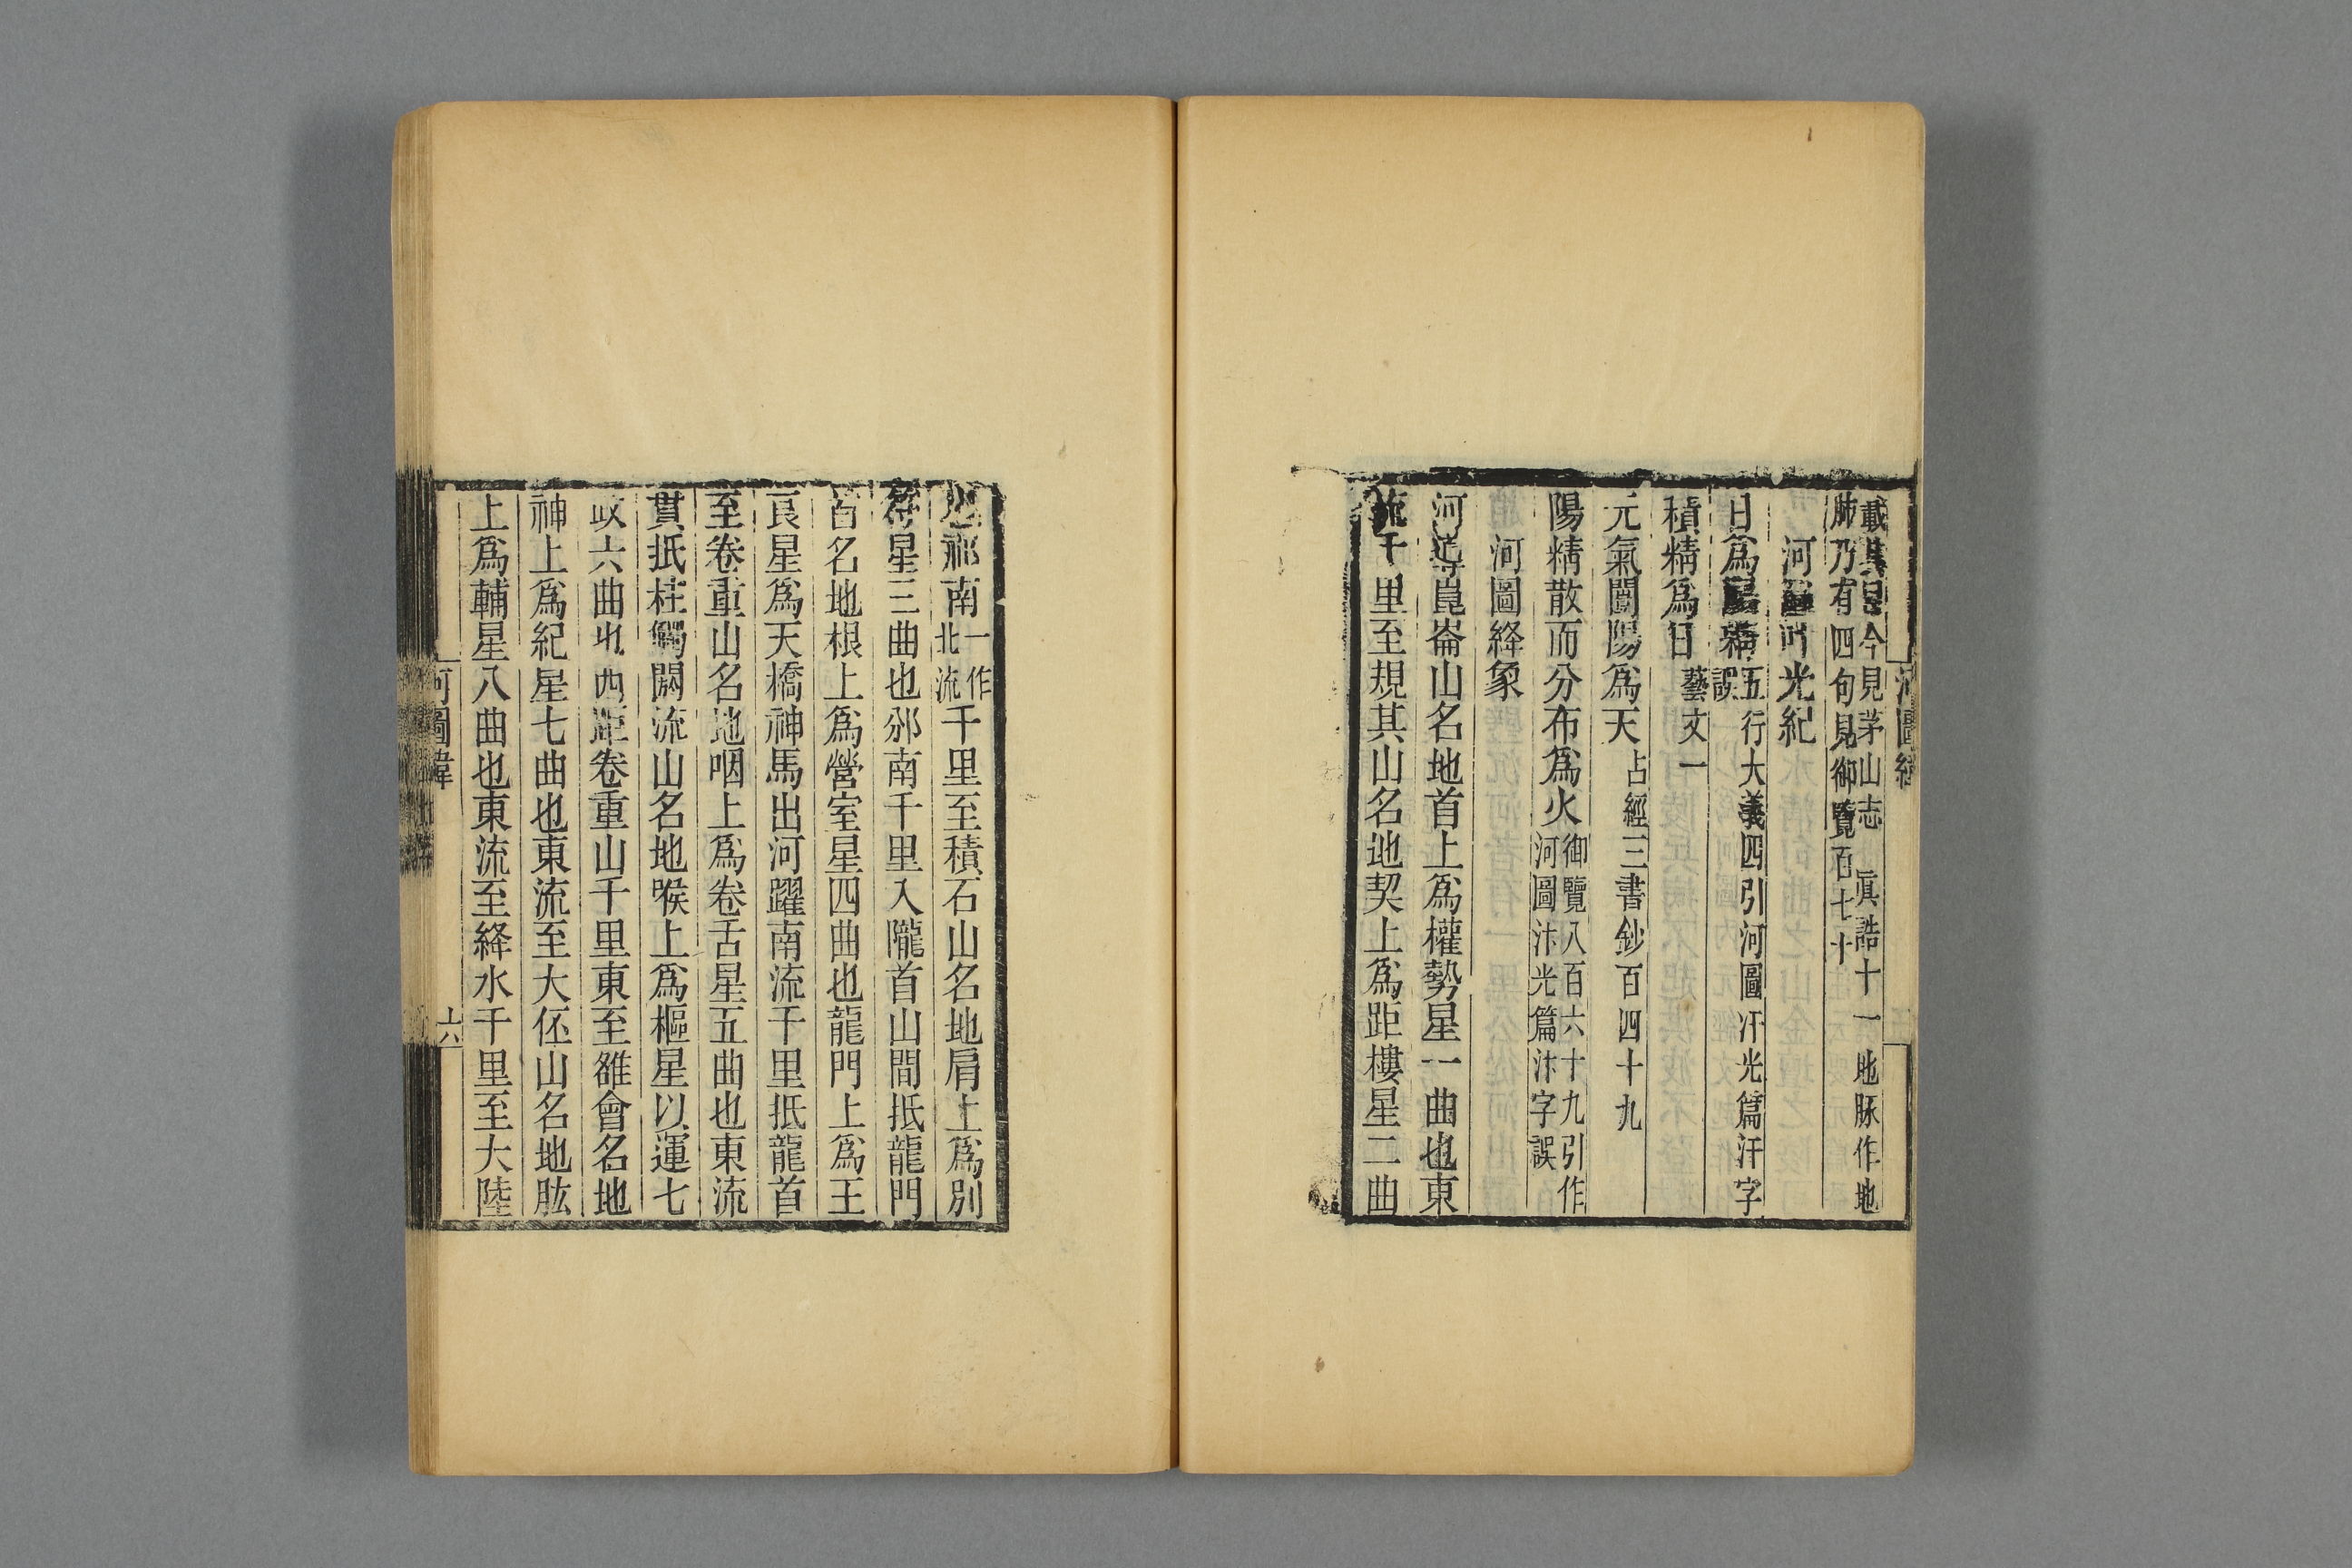 河圖緯
載其目今見茅山志 眞誥十一地脉作地
肺乃有四句見御覽百七十
河圖叶光紀
日爲 五行大義四引河圖汗光篇汗字
誤
積精爲日藝文一
元氣闓陽爲天占經三書鈔百四十九
陽精散而分布爲火御覽八百六十九引作
河圖汴光篇汴字誤
河圖絳象
河導崑崙山名地首上爲權勢星一曲也東
流千里至規其山名地契上爲距樓星二曲
也邠南一作
北流千里至積石山名地肩上爲別
符星三曲也邠南千里入隴首山間抵龍門
首名地根上爲營室星四曲也龍門上爲王
良星爲天橋神馬出河躍南流千里抵龍首
至卷重山名地咽上爲卷舌星五曲也東流
貫抵柱觸閼流山名地喉上爲樞星以運七
政六曲也西距卷重山千里東至雒會名地
神上爲紀星七曲也東流至大伾山名地肱
上爲輔星八曲也東流至絳水千里至大陸
河圖緯
六